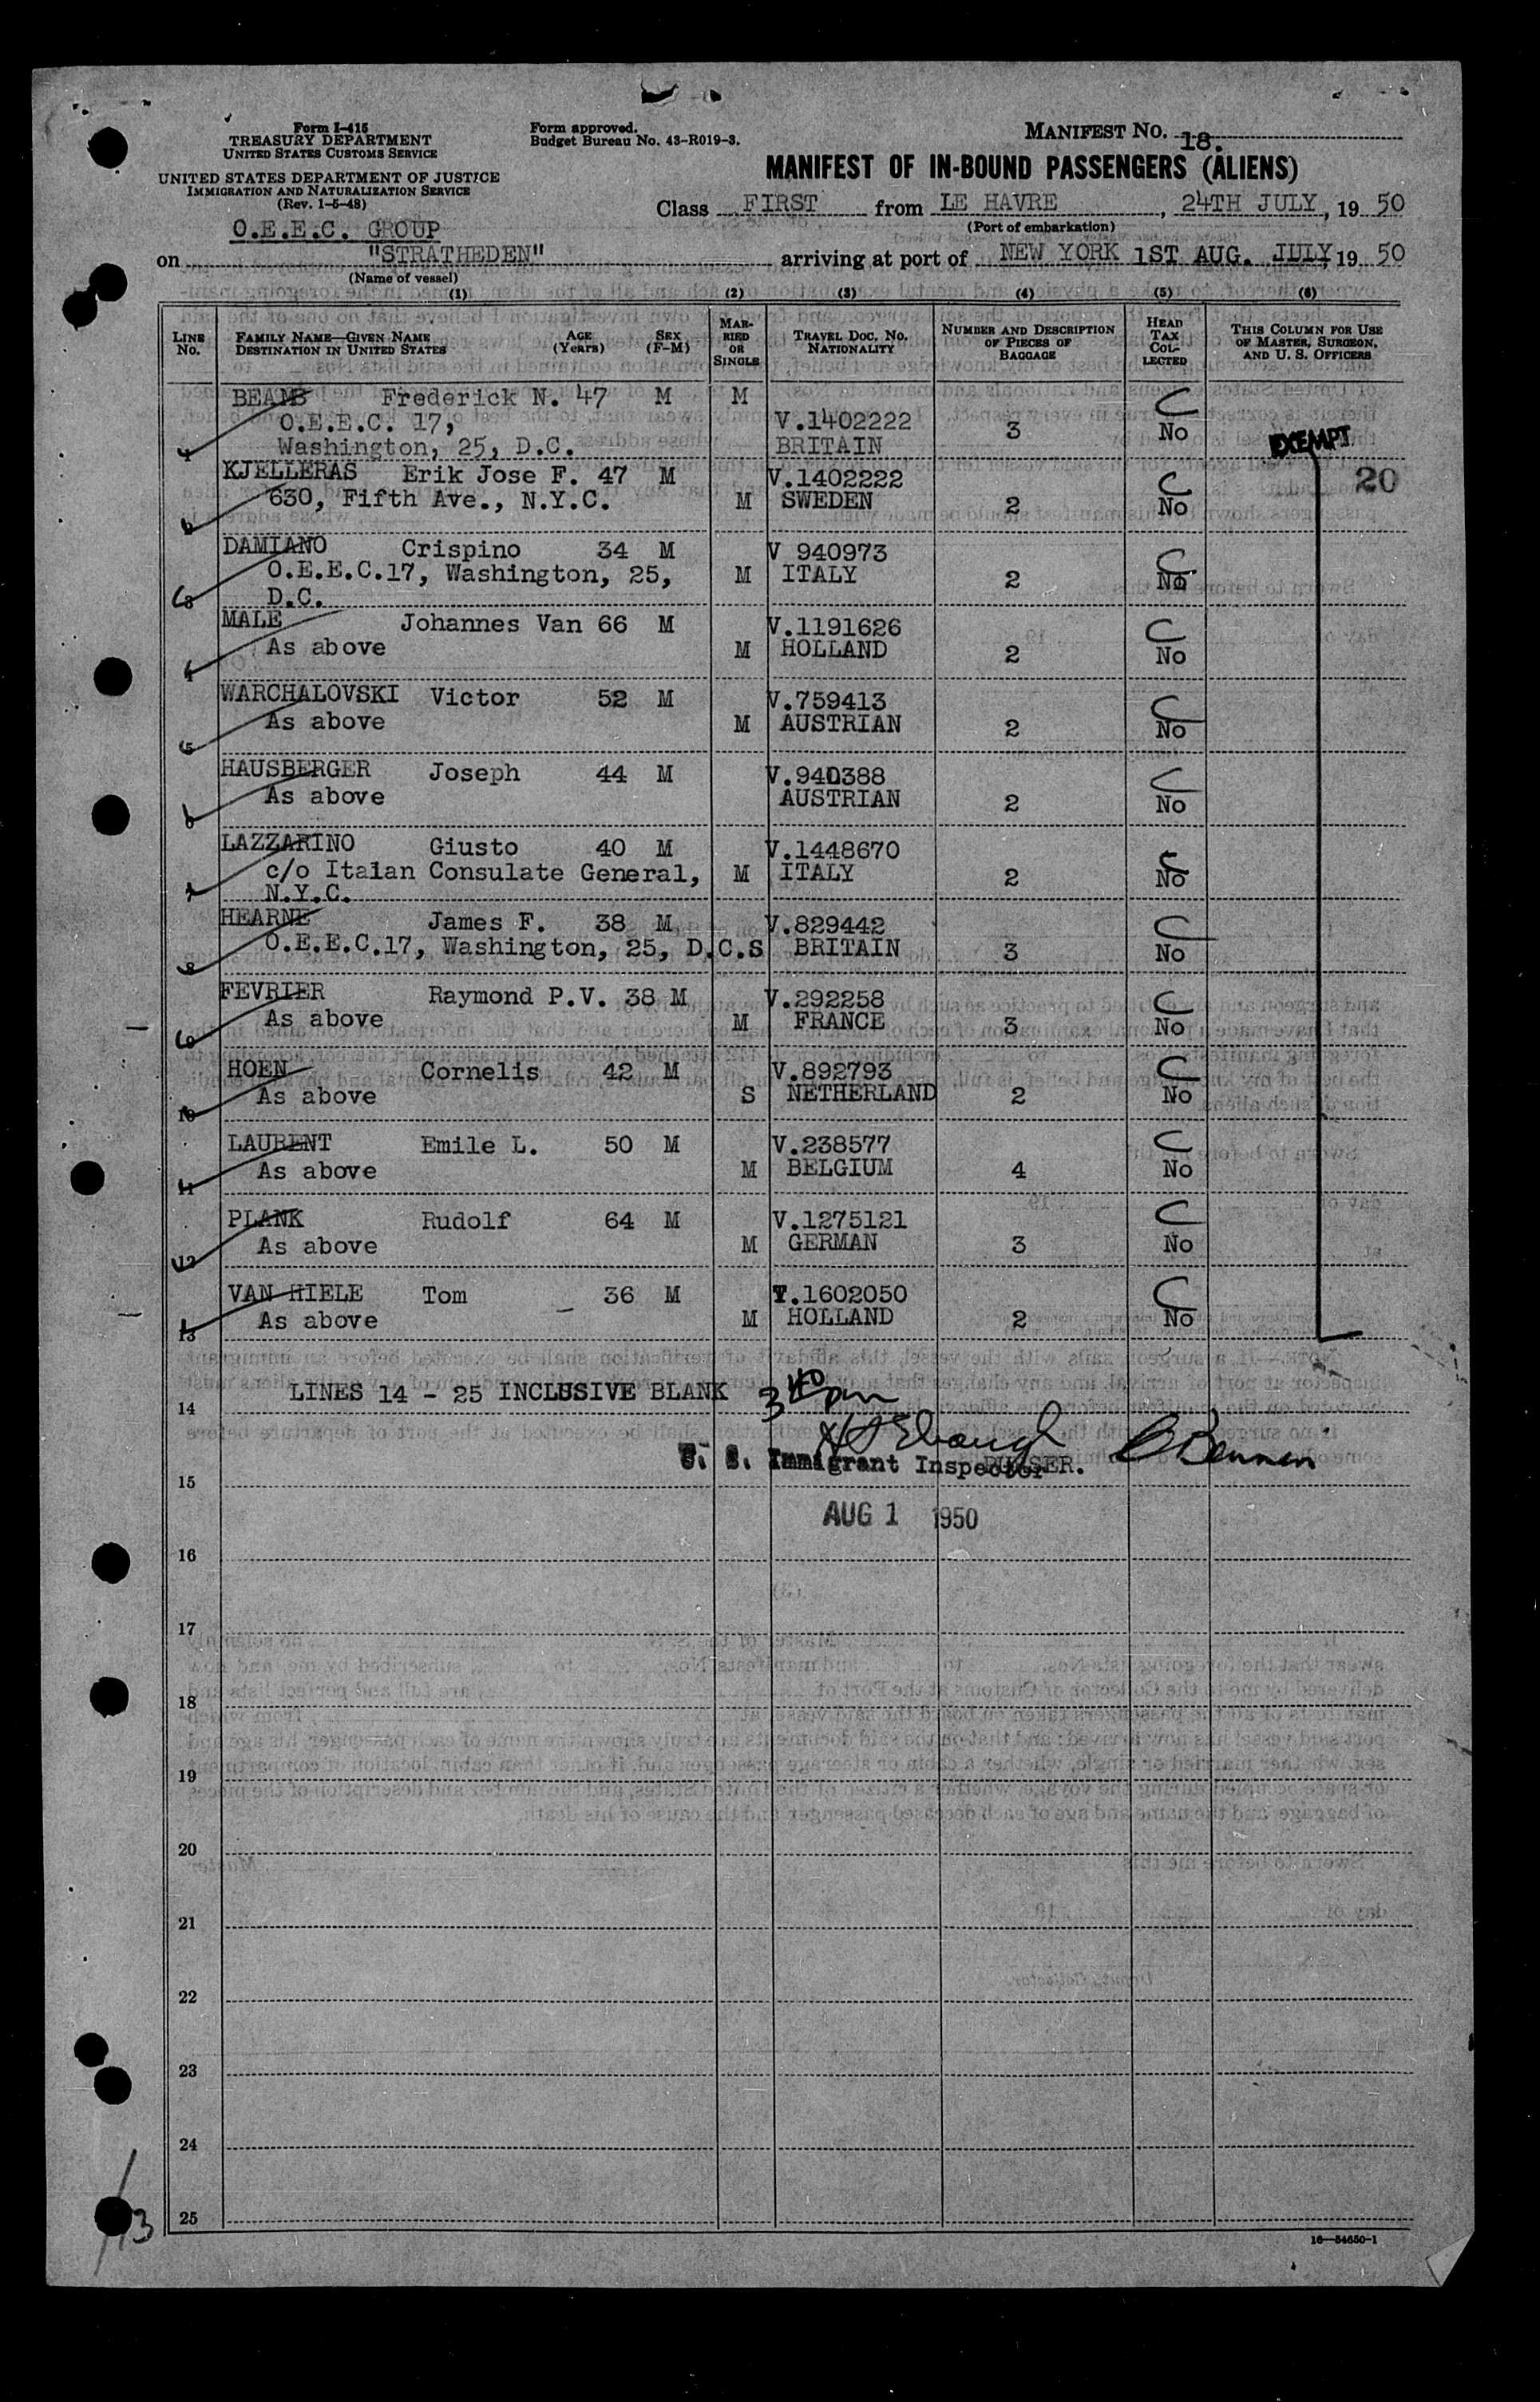 Form I-415
TREASURY DEPARTMENT
UNITED STATES CUSTOMS SERVICE
UNITED STATES DEPARTMENT OF JUSTICE
IMMIGRATION AND NATURALIZATION SERVICE
(Rev. 1-5-48)
Form approved.
Budget Bureau No. 43-R019-3.
MANIFEST NO. 18.
MANIFEST OF IN-BOUND PASSENGERS (ALIENS)
Class FIRST from LE HAVRE, 24TH JULY, 19 50
(Port of embarkation)
O.E.E.C. GROUP
on "STRATHEDEN" arriving at port of NEW YORK 1ST AUG. JULY, 19 50
(Name of vessel)
(1) (2) (3) (4) (5) (6)
LINE No. FAMILY NAME—GIVEN NAME DESTINATION IN UNITED STATES AGE (Years) SEX (F-M) MARRIED OR SINGLE TRAVEL DOC. NO. NATIONALITY NUMBER AND DESCRIPTION OF PIECES OF BAGGAGE HEAD TAX COLLECTED THIS COLUMN FOR USE OF MASTER, SURGEON, AND U. S. OFFICERS
BEAMS Frederick N. 47 M M
O.E.E.C. 17, V.1402222 3 No EXEMPT
1 Washington, 25, D.C. BRITAIN
KJELLERAS Erik Jose F. 47 M V.1402222 20
630, Fifth Ave., N.Y.C. M SWEDEN 2 No
2
DAMIANO Crispino 34 M V 940973
O.E.E.C.17, Washington, 25, M ITALY 2 No
3 D.C.
MALE Johannes Van 66 M V.1191626
As above M HOLLAND 2 No
4
WARCHALOVSKI Victor 52 M V.759413
As above M AUSTRIAN 2 No
5
HAUSBERGER Joseph 44 M V.940388
As above AUSTRIAN 2 No
6
LAZZARINO Giusto 40 M V.1448670
c/o Itaian Consulate General, M ITALY 2 No
7 N.Y.C.
HEARNE James F. 38 M V.829442
O.E.E.C.17, Washington, 25, D.C.S BRITAIN 3 No
8
FEVRIER Raymond P.V. 38 M V.292258
As above M FRANCE 3 No
9
HOEN Cornelis 42 M V.892793
As above S NETHERLAND 2 No
10
LAURENT Emile L. 50 M V.238577
As above M BELGIUM 4 No
11
PLANK Rudolf 64 M V.1275121
As above M GERMAN 3 No
12
VAN HIELE Tom 36 M V.1602050
As above M HOLLAND 2 No
13
LINES 14 - 25 INCLUSIVE BLANK 3 40 pm
14
U. S. Immigrant Inspector PURSER.
15
AUG 1 1950
16
17
18
19
20
21
22
23
24
25
13
16—54650-1